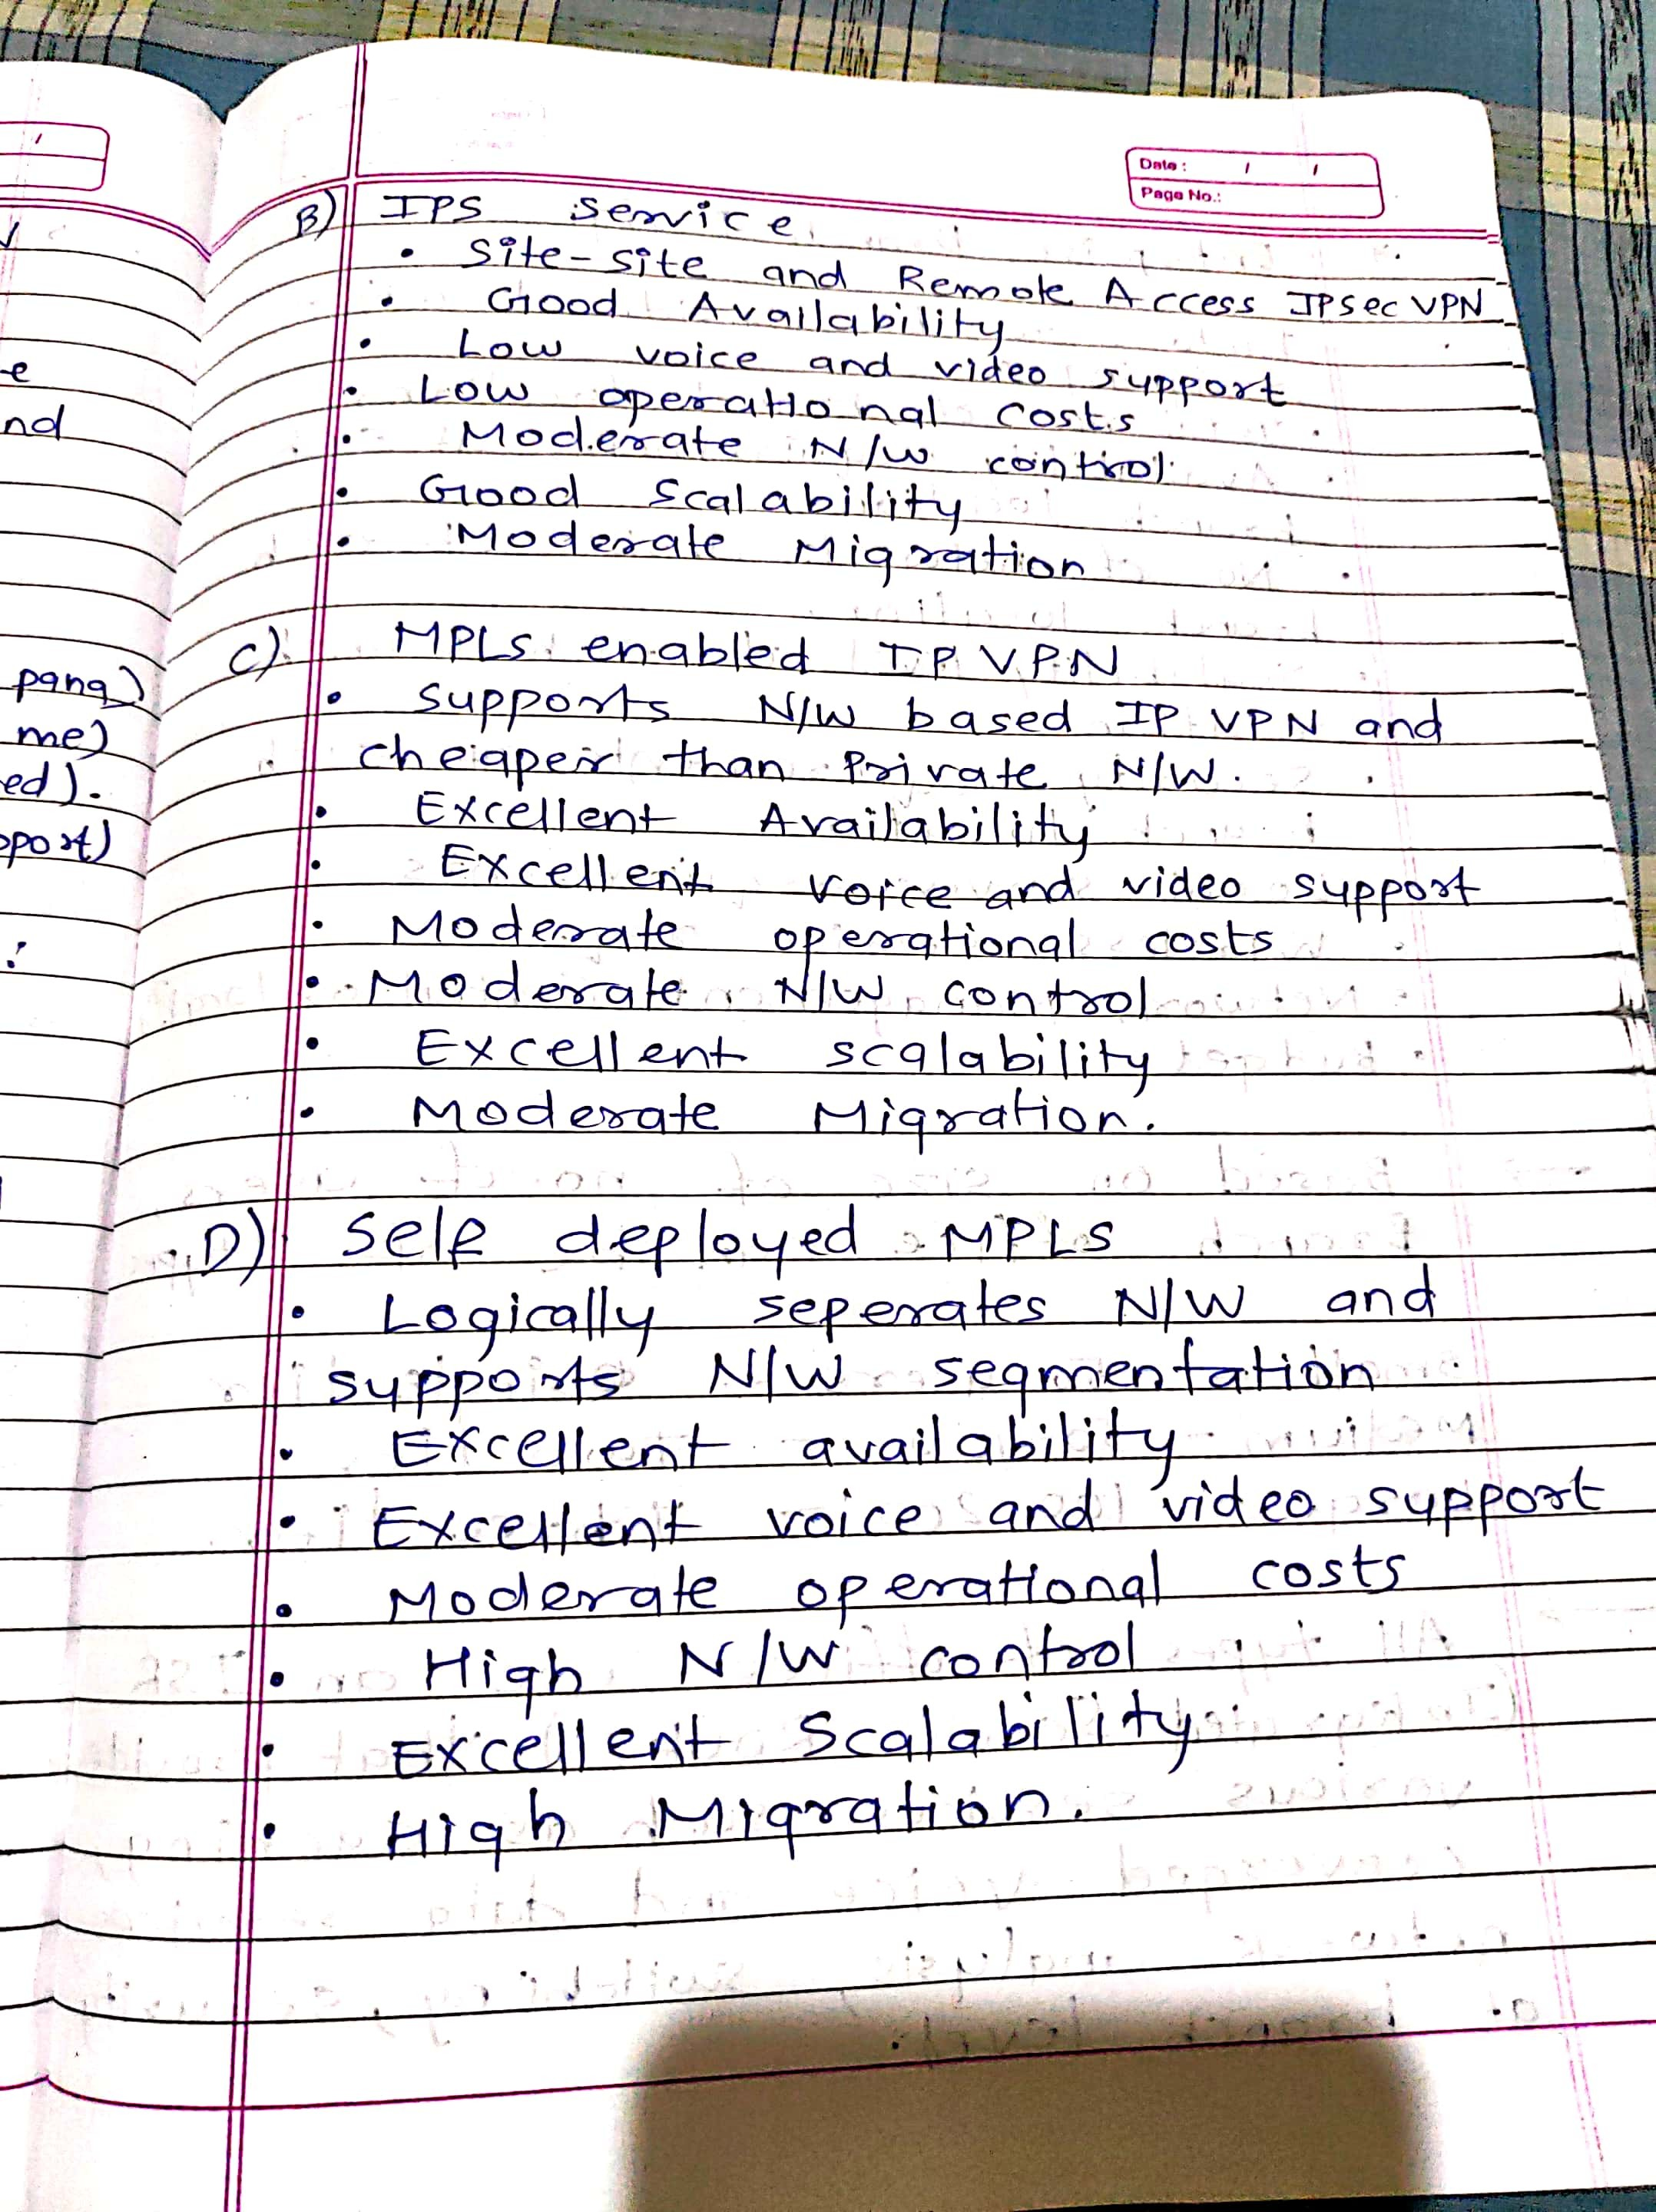 Date : / /
Page No.:
B) IPS service
• Site-site and Remote Access IPsec VPN
• Good Availability
• Low voice and video support
• Low operational costs
• Moderate N/W control
• Good Scalability
• Moderate Migration
C) MPLS enabled IP VPN
• supports N/W based IP VPN and
cheaper than Private N/W.
• Excellent Availability
• Excellent voice and video support
• Moderate operational costs
• Moderate N/W control
• Excellent scalability
• Moderate Migration.
D) Self deployed MPLS
• Logically seperates N/W and
supports N/W segmentation
• Excellent availability
• Excellent voice and video support
• Moderate operational costs
• High N/W control
• Excellent Scalability
• High Migration.
/
e
nd
pang)
me)
ed).
pport)
: